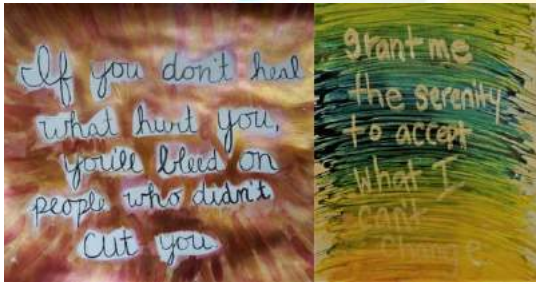 If you don't heal
what hurt you,
you'll bleed on
people who didn't
cut you.
grant me
the serenity
to accept
what I
can't
change